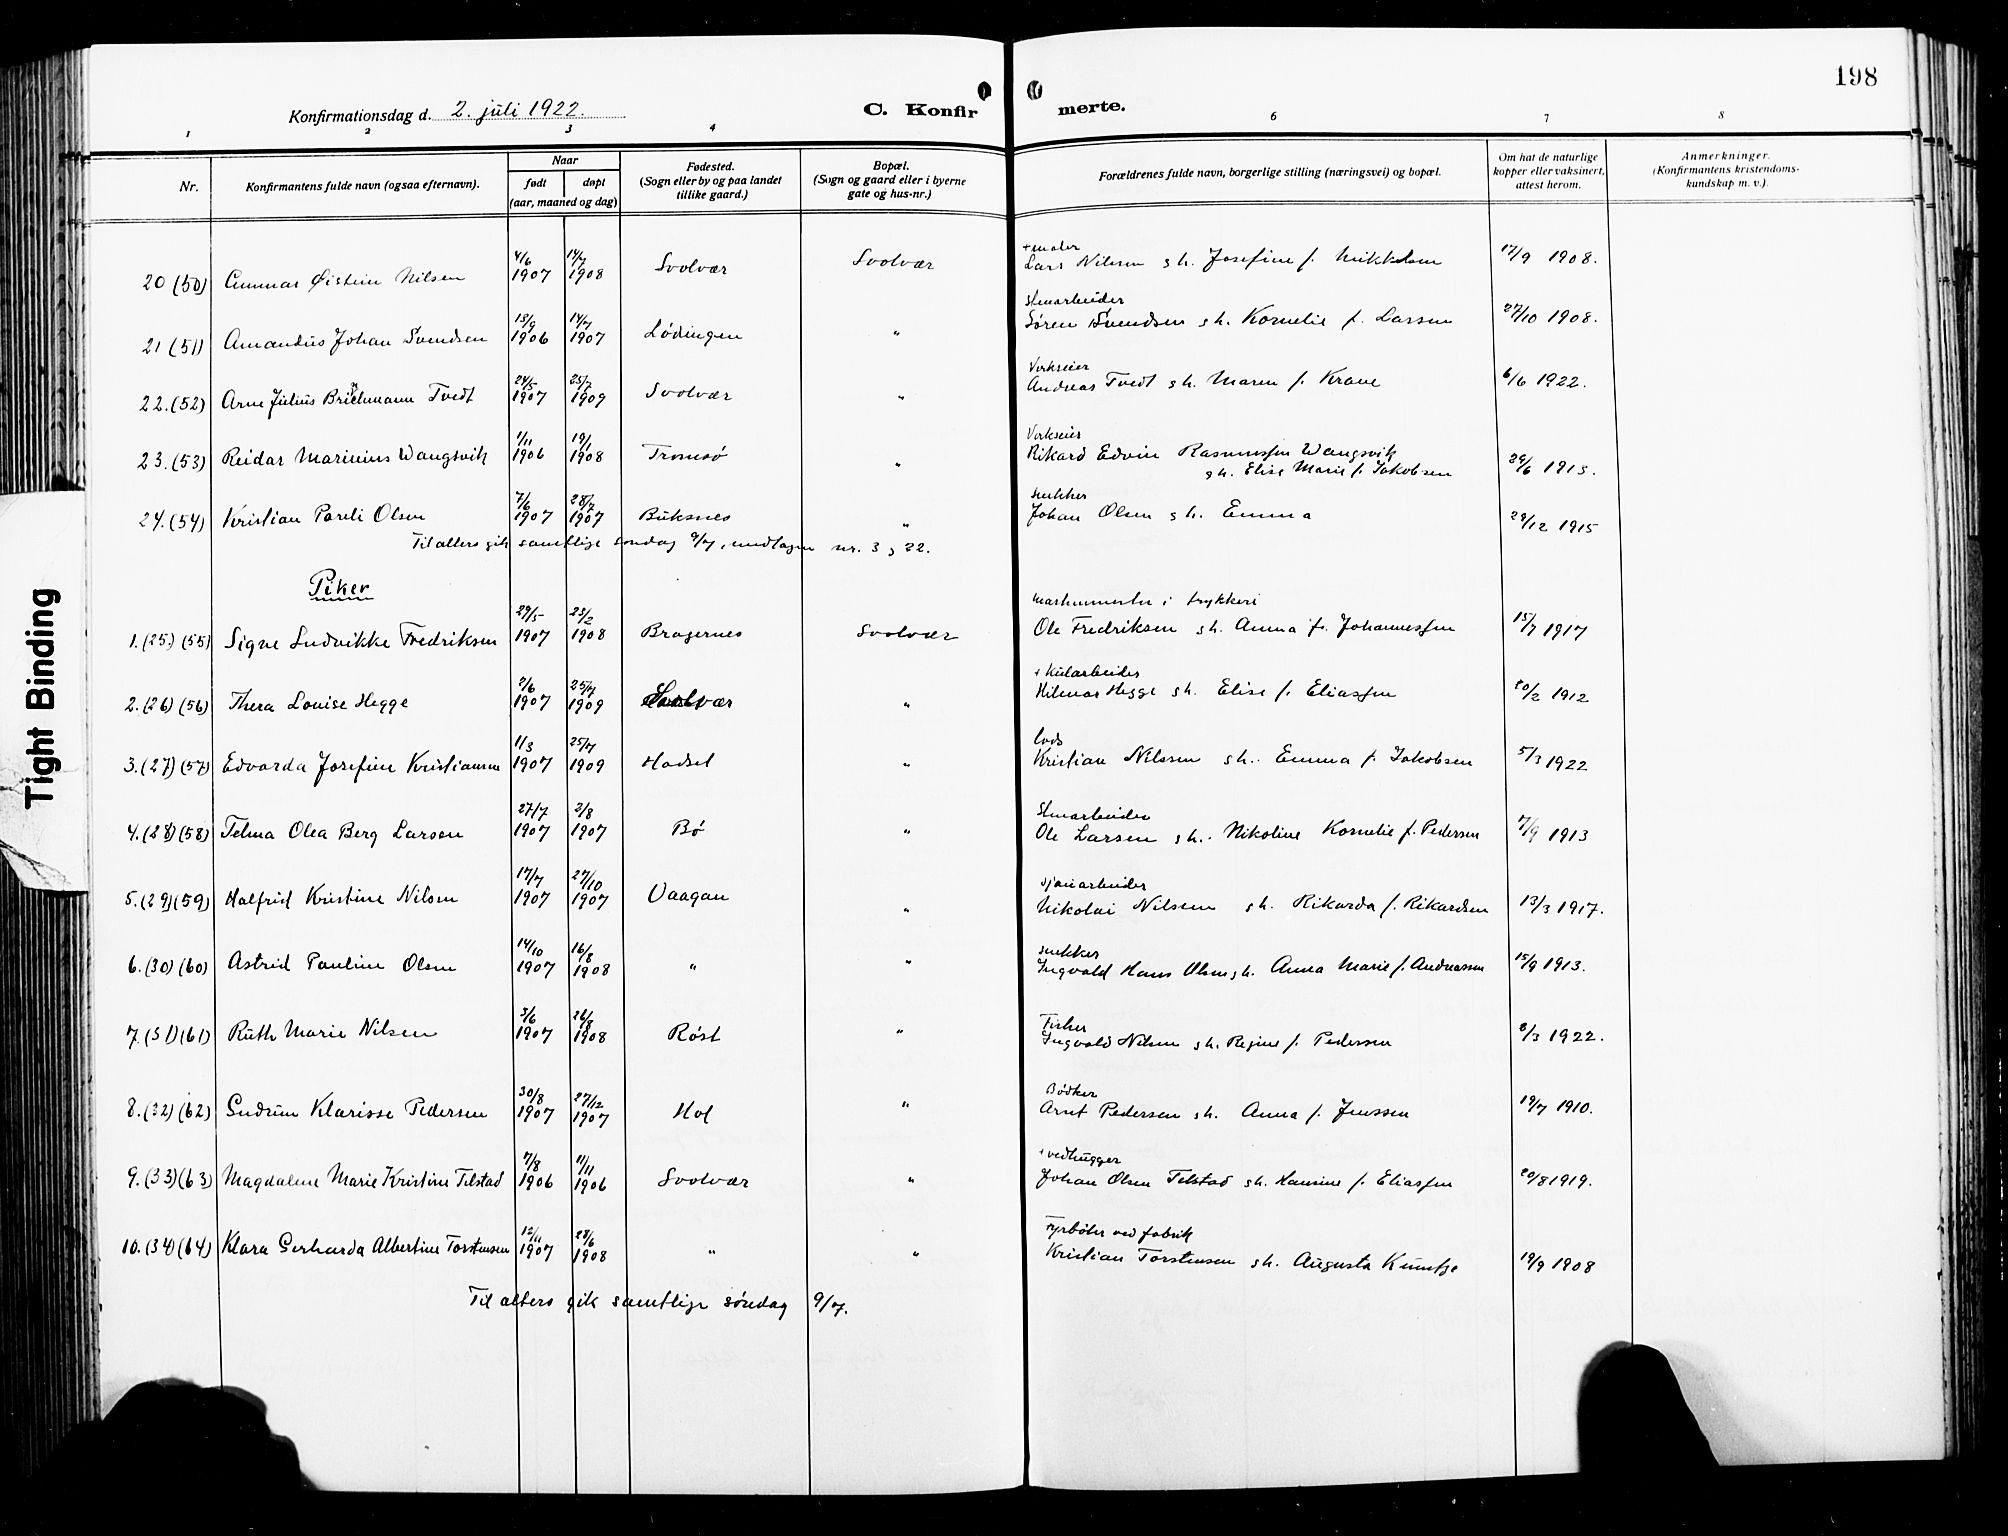 198
Konfirmationsdag d. 2. juli 1922.
C. Konfirmerte.
1 2 3 4 6 7 8
Nr.
Konfirmantens fulde navn (ogsaa efternavn).
Naar
født døpt
(aar, maaned og dag)
Fødested.
(Sogn eller by og paa landet
tillike gaard.)
Bopæl.
(Sogn og gaard eller i byerne
gate og hus-nr.)
Forældrenes fulde navn, borgerlige stilling (næringsvei) og bopæl.
Om hat de naturlige
kopper eller vaksinert,
attest herom.
Anmerkninger.
(Konfirmantens kristendoms-
kundskap m. v.).
20 (50) Gunnar Øistein Nilsen 4/6 1907 14/7 1908 Svolvær Svolvær
+ maler
Lars Nilsen og h. Josefine f. Mikkelsen 17/9 1908.
21 (51) Amandus Johan Svendsen 13/9 1906 14/7 1907 Lødingen "
Stenarbeider
Søren Svendsen og h. Kornelie f. Larsen 27/10 1908.
22. (52) Arne Julius Brichmann Tvedt 24/5 1907 25/7 1909 Svolvær "
Verkseier
Andreas Tvedt og h. Maren f. Krane 6/6 1922.
23. (53) Reidar Marinius Wangsvik 1/11 1906 19/1 1908 Tromsø "
Verkseier
Rikard Edvin Rasmussen Wangsvik
og h. Elise Marie f. Jakobsen 24/6 1913.
24. (54) Kristian Pareli Olsen 7/6 1907 28/7 1907 Buksnes "
snekker
Johan Olsen og h. Emma 29/12 1915
Til alters gik samtlige søndag 9/7, undtagen nr. 3 og 22.
Piker
1. (25) (55) Signe Ludvikke Fredriksen 29/5 1907 23/2 1908 Bragernes Svolvær
maskinmester i trykkeri
Ole Fredriksen og h. Anna f. Johannessen 15/7 1917
2. (26) (56) Thera Louise Hegge 2/6 1907 25/7 1909 Svolvær "
+ kularbeider
Hilmar Hegge og h. Elise f. Eliassen 20/2 1912
3. (27) (57) Edvarda Josefine Kristiansen 11/3 1907 25/7 1909 Hadsel "
lods
Kristian Nilssen og h. Emma f. Jakobsen 5/3 1922
4. (28) (58) Telma Olea Berg Larsen 27/7 1907 2/8 1907 Bø "
Stenarbeider
Ole Larsen og h. Nikoline Kornelie f. Pedersen 7/9 1913
5. (29) (59) Halfrid Kristine Nilsen 17/7 1907 27/10 1907 Vaagan "
sjauarbeider
Nikolai Nilsen og h. Rikarda f. Rikardsen 13/3 1917.
6. (30) (60) Astrid Pauline Olsen 14/10 1907 16/8 1908 " "
snekker
Ingvald Hans Olsen og h. Anna Marie f. Andreassen 15/9 1913.
7. (31) (61) Ruth Marie Nilsen 3/6 1907 26/8 1908 Røst "
Fisker
Ingvald Nilsen og h. Regine f. Pedersen 8/3 1922.
8. (32) (62) Gudrun Klarisse Pedersen 30/8 1907 27/12 1907 Hol "
Bødker
Arnt Pedersen og h. Anna f. Jenssen 19/7 1910.
9. (33) (63) Magdalene Marie Kristine Tilstad 7/8 1906 11/11 1906 Svolvær "
+ vedhugger
Johan Olsen Tilstad og h. Hansine f. Eliassen 20/8 1919.
10. (34) (64) Klara Gerharda Albertine Torstensen 12/11 1907 28/6 1908 " "
Fyrbøter ved fabrik
Kristian Torstensen og h. Augusta 19/9 1908
Til alters gik samtlige søndag 9/7.
Tight Binding